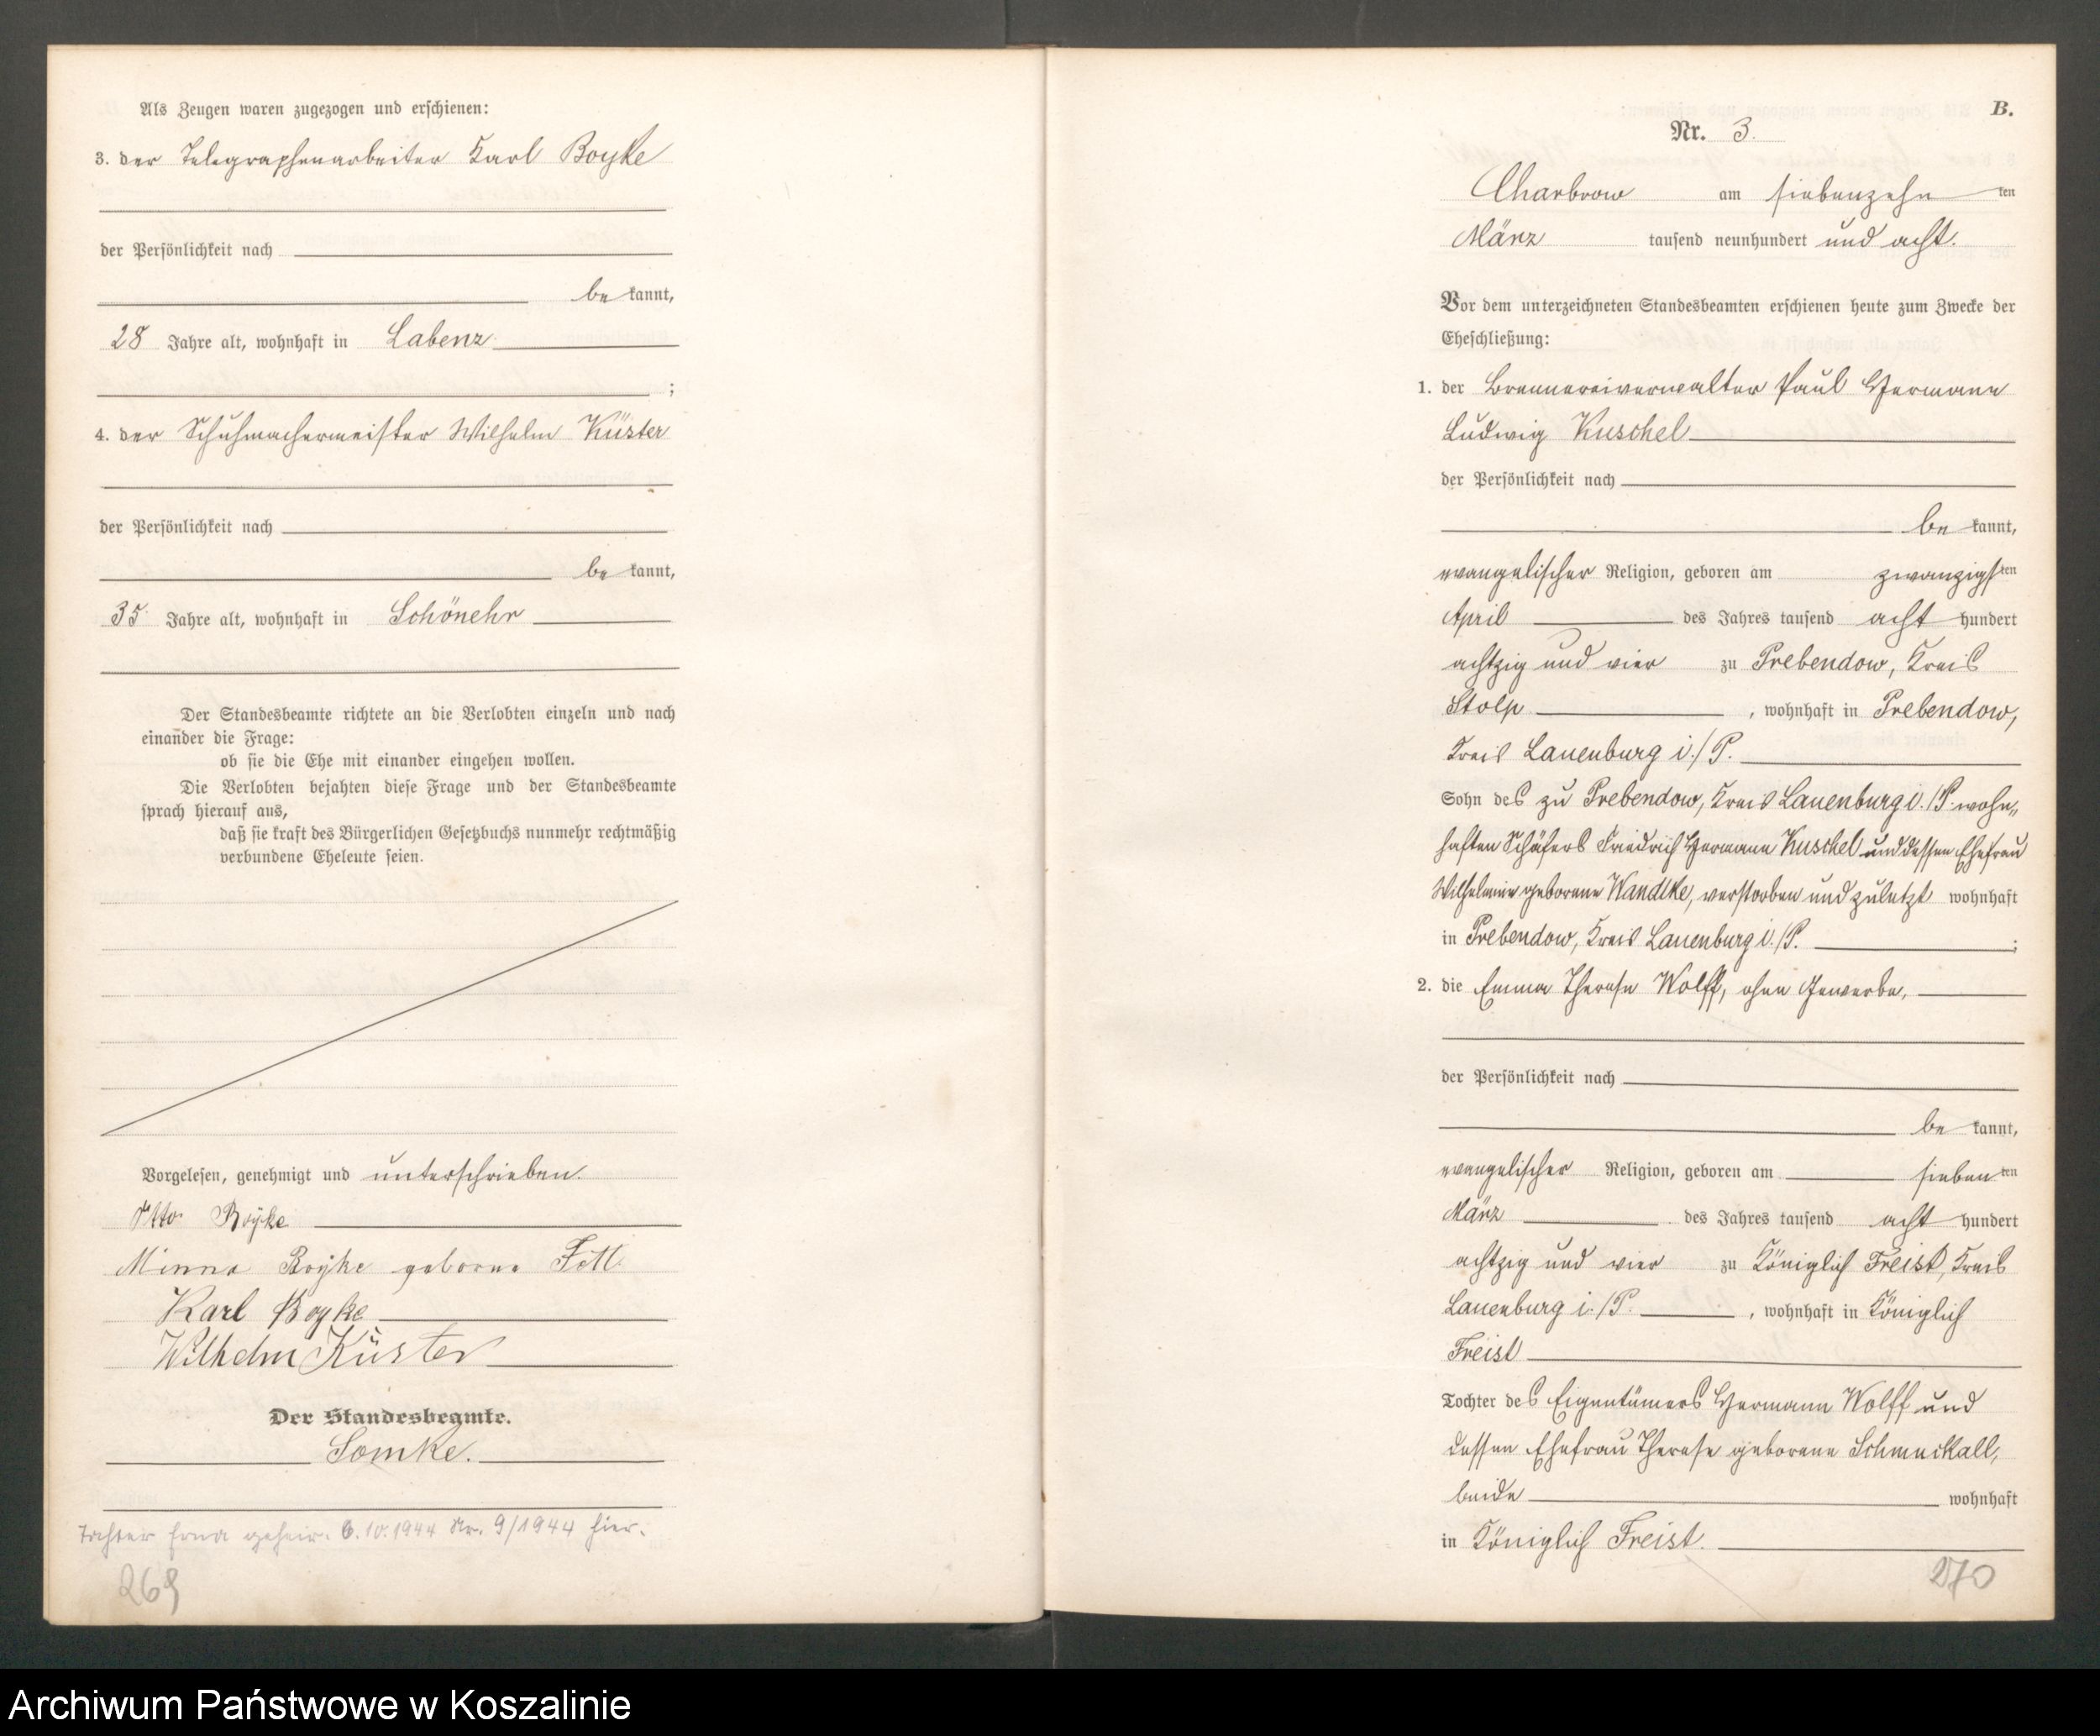 Als Zeugen waren zugezogen und erschienen:
3. der Telegraphenarbeiter Karl Boyke
der Persönlichkeit nach
be kannt,
28 Jahre alt, wohnhaft in Labenz
;
4. der Schuhmachermeister Wilhelm Küster
der Persönlichkeit nach
be kannt,
35 Jahre alt, wohnhaft in Schönehr
Der Standesbeamte richtete an die Verlobten einzeln und nach
einander die Frage:
ob sie die Ehe mit einander eingehen wollen.
Die Verlobten bejahten diese Frage und der Standesbeamte
sprach hierauf aus,
daß sie kraft des Bürgerlichen Gesetzbuchs nunmehr rechtmäßig
verbundene Eheleute seien.
Vorgelesen, genehmigt und unterschrieben.
Otto Boyke
Minna Boyke geborne
Karl Boyke
Wilhelm Küster
Der Standesbeamte.
Somke.
Tochter Erna geheir. 6.10.1944 Nr. 9/1944 hier.
269
B.
Nr. 3.
Charbrow am siebenzehn ten
März tausend neunhundert und acht.
Vor dem unterzeichneten Standesbeamten erschienen heute zum Zwecke der
Eheschließung:
1. der Brennereiverwalter Paul Hermann
Ludwig Kuschel
der Persönlichkeit nach
be kannt,
evangelischer Religion, geboren am zwanzigsten
April des Jahres tausend acht hundert
achtzig und vier zu Prebendow, Kreis
Stolp, wohnhaft in Prebendow,
Kreis Lauenburg i./P.
Sohn des zu Prebendow, Kreis Lauenburg i./P. wohn„
haften Schäfers Friedrich Hermann Kuschel und dessen Ehefrau
Wilhelmine geborene Wandtke, verstorben und zuletzt wohnhaft
in Prebendow, Kreis Lauenburg i./P. ;
2. die Emma Therese Wolff, ohne Gewerbe,
der Persönlichkeit nach
be kannt,
evangelischer Religion, geboren am sieben ten
März des Jahres tausend acht hundert
achtzig und vier zu Königlich Freist, Kreis
Lauenburg i./P., wohnhaft in Königlich
Freist
Tochter des Eigentümers Hermann Wolff und
dessen Ehefrau Therese geborene Schmuckall,
beide wohnhaft
in Königlich Freist.
270
Archiwum Państwowe w Koszalinie